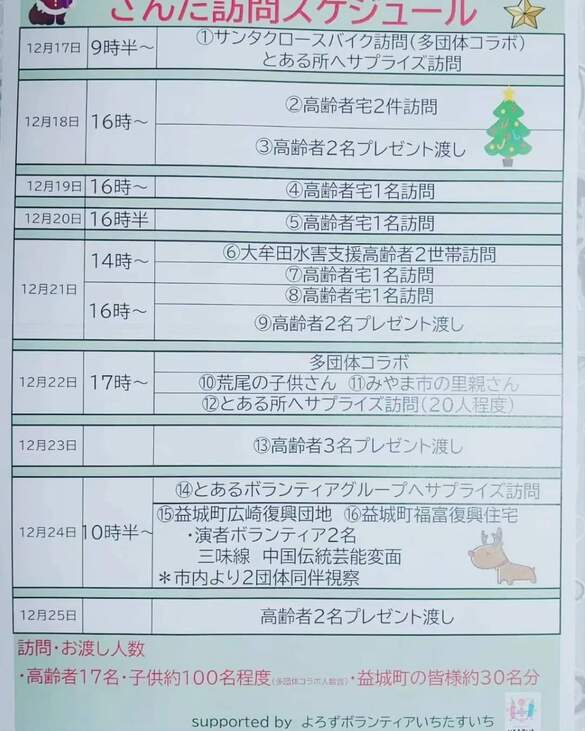 さんた訪問スケジュール
12月17日 9時半～ ①サンタクロースバイク訪問(多団体コラボ)
とある所へサプライズ訪問
12月18日 16時～ ②高齢者宅2件訪問
③高齢者2名プレゼント渡し
12月19日 16時～ ④高齢者宅1名訪問
12月20日 16時半 ⑤高齢者宅1名訪問
12月21日 14時～ ⑥大牟田水害支援高齢者2世帯訪問
⑦高齢者宅1名訪問
16時～ ⑧高齢者宅1名訪問
⑨高齢者2名プレゼント渡し
12月22日 17時～ 多団体コラボ
⑩荒尾の子供さん ⑪みやま市の里親さん
⑫とある所へサプライズ訪問(20人程度)
12月23日 ⑬高齢者3名プレゼント渡し
12月24日 10時半～ ⑭とあるボランティアグループへサプライズ訪問
⑮益城町広崎復興団地 ⑯益城町福富復興住宅
・演者ボランティア2名
三味線 中国伝統芸能変面
＊市内より2団体同伴視察
12月25日 高齢者2名プレゼント渡し
訪問・お渡し人数
・高齢者17名・子供約100名程度(多団体コラボ人数含)・益城町の皆様約30名分
supported by よろずボランティアいちたすいち